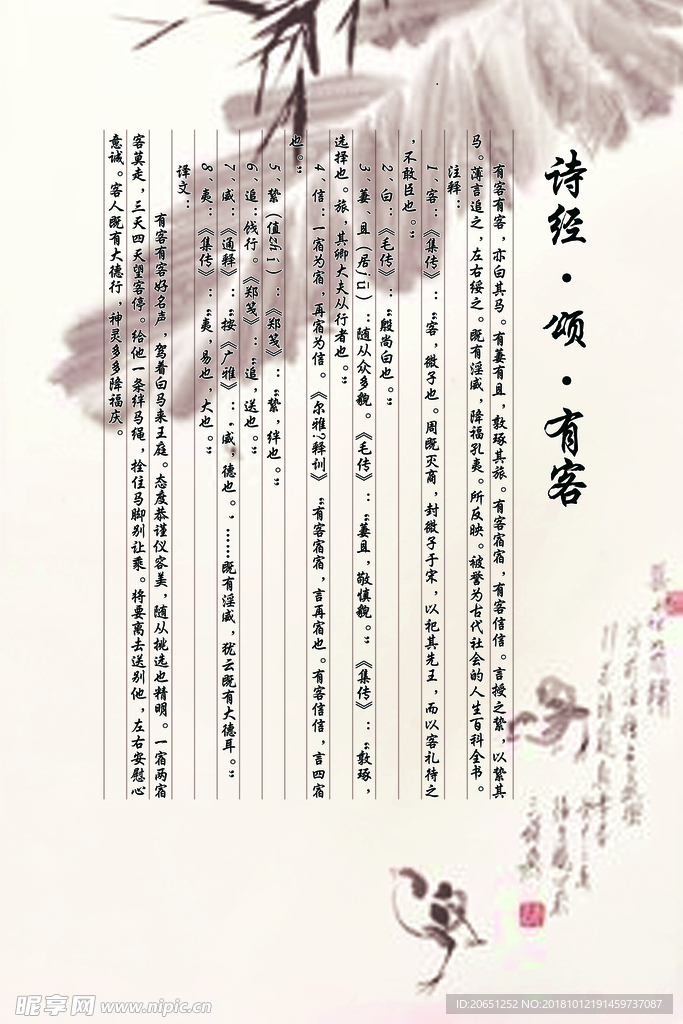 诗经·颂·有客
有客有客，亦白其马。有萋有且，敦琢其旅。有客宿宿，有客信信。言授之絷，以絷其
马。薄言追之，左右绥之。既有淫威，降福孔夷。所反映。被誉为古代社会的人生百科全书。
注释：
1、客：《集传》：“客，微子也。周既灭商，封微子于宋，以祀其先王，而以客礼待之
，不敢臣也。”
2、白：《毛传》：“殷尚白也。”
3、萋、且（居jū）：随从众多貌。《毛传》：“萋且，敬慎貌。”《集传》：“敦琢，
选择也。旅，其卿大夫从行者也。”
4、信：一宿为宿，再宿为信。《尔雅?释训》“有客宿宿，言再宿也。有客信信，言四宿
也。”
5、絷（值zhí）：《郑笺》：“絷，绊也。”
6、追：饯行。《郑笺》：“追，送也。”
7、威：《通释》：“按《广雅》：‘威，德也。’……既有淫威，犹云既有大德耳。”
8、夷：《集传》：“夷，易也，大也。”
译文：
有客有客好名声，驾着白马来王庭。态度恭谨仪容美，随从挑选也精明。一宿两宿
客莫走，三天四天望客停。给他一条绊马绳，拴住马脚别让乘。将要离去送别他，左右安慰心
意诚。客人既有大德行，神灵多多降福庆。
昵享网 www.nipic.cn
ID:20651252 NO:20181012191459737087